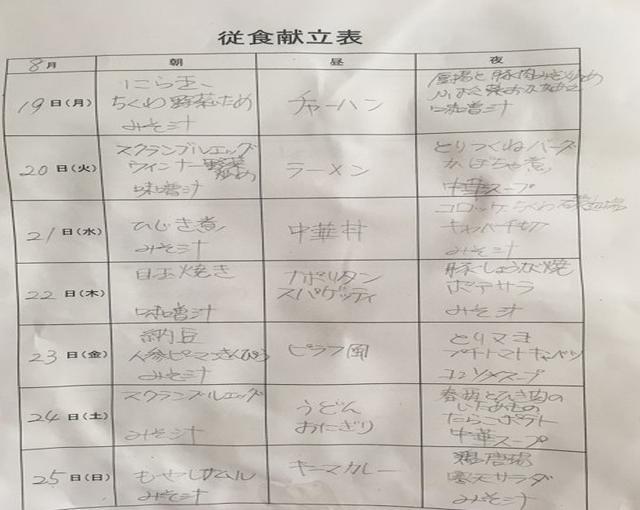 従食献立表
8月 朝 昼 夜
19日(月)
にら玉、
ちくわ野菜いため
みそ汁
チャーハン
厚揚と豚肉みそ炒め
味噌汁
20日(火)
スクランブルエッグ
ウィンナー野菜
炒め
味噌汁
ラーメン
とりつくねバーグ
かぼちゃ煮
中華スープ
21日(水)
ひじき煮
みそ汁
中華丼
コロッケ ちくわ
みそ汁
22日(木)
目玉焼き
味噌汁
ナポリタン
スパゲッティ
豚しょうが焼
ポテサラ
みそ汁
23日(金)
納豆
人参ピーマンきんぴら
みそ汁
ピラフ風
とりマヨ
プチトマト キャベツ
コンソメスープ
24日(土)
スクランブルエッグ
みそ汁
うどん
おにぎり
春雨とひき肉の
いためもの
たらこポテト
中華スープ
25日(日)
みそ汁
キーマカレー
鶏唐揚
寒天サラダ
みそ汁